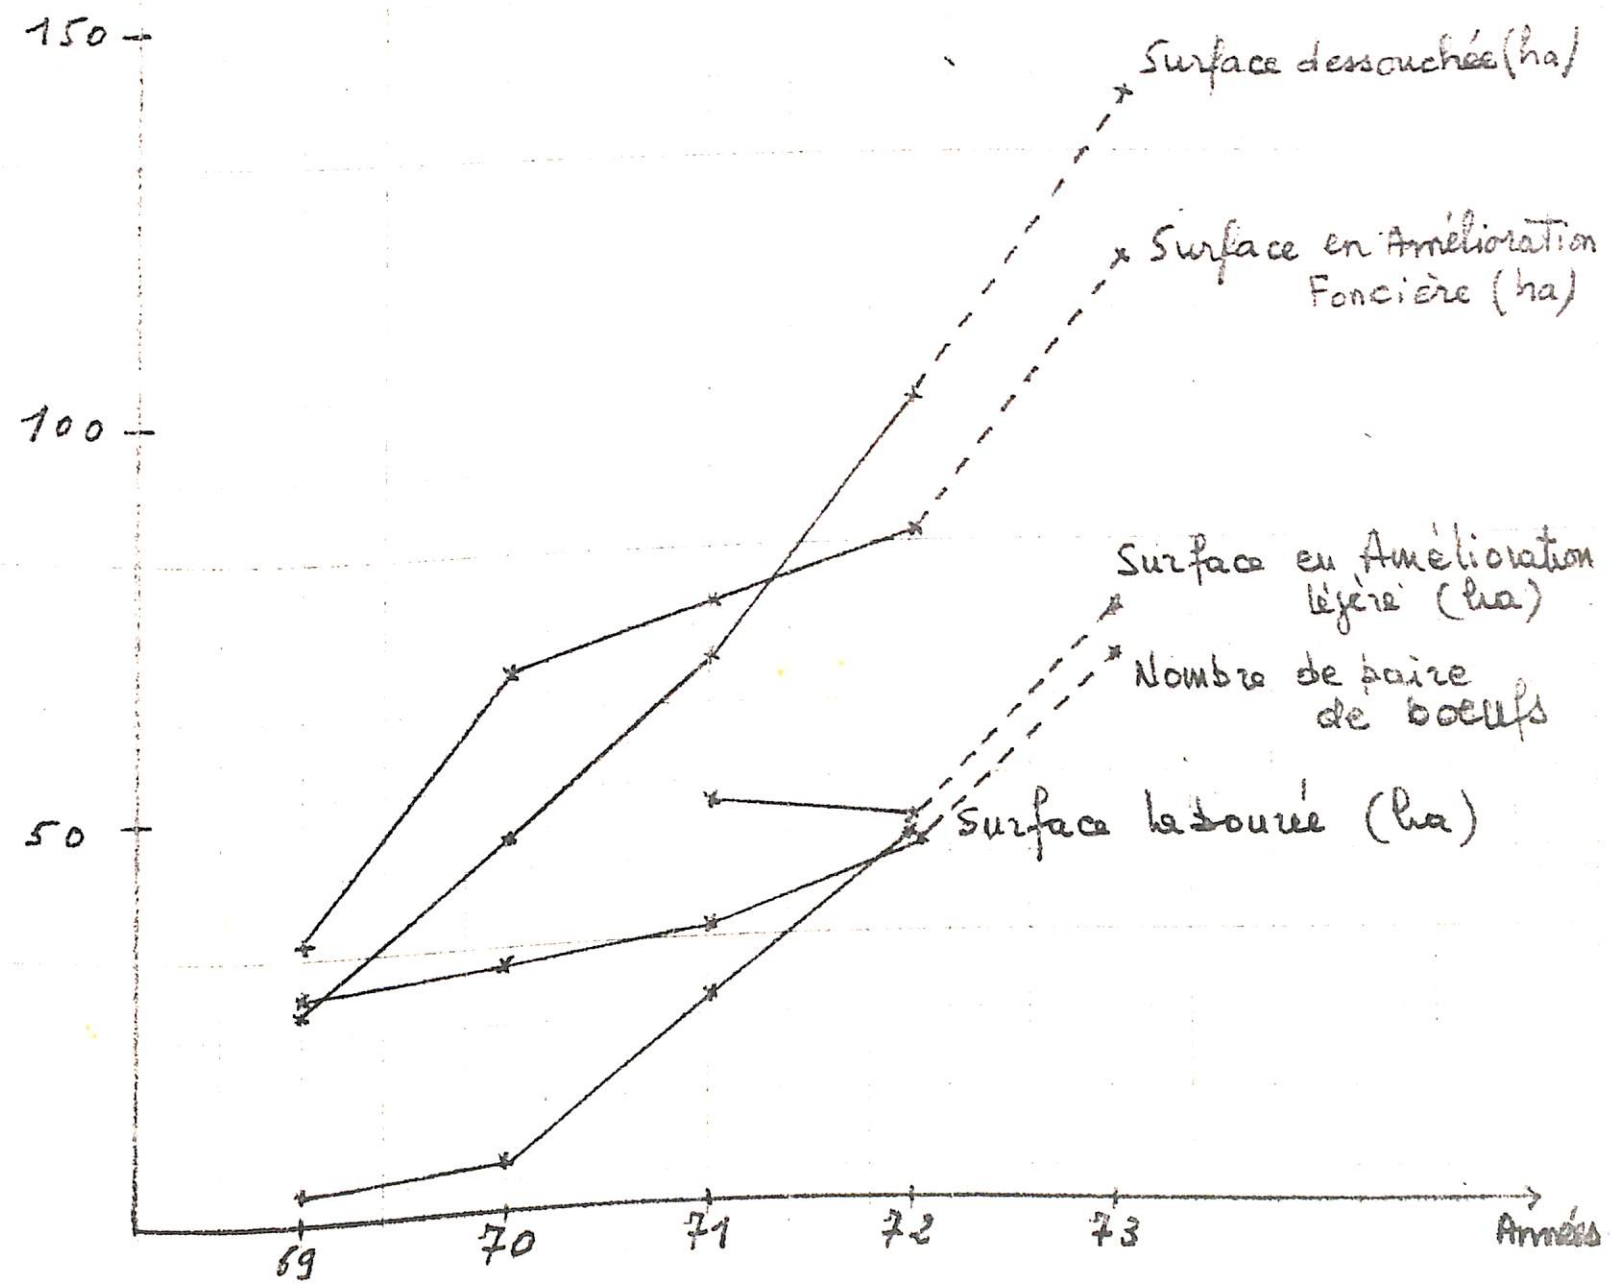 150
Surface dessouchée (ha)
Surface en Amélioration
Foncière (ha)
100
Surface en Amélioration
légère (ha)
Nombre de paire
de boeufs
50
Surface labourée (ha)
69
70
71
72
73
Années